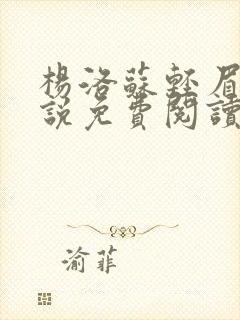 楊洛蘇輕眉
說免費閱讀
渝菲